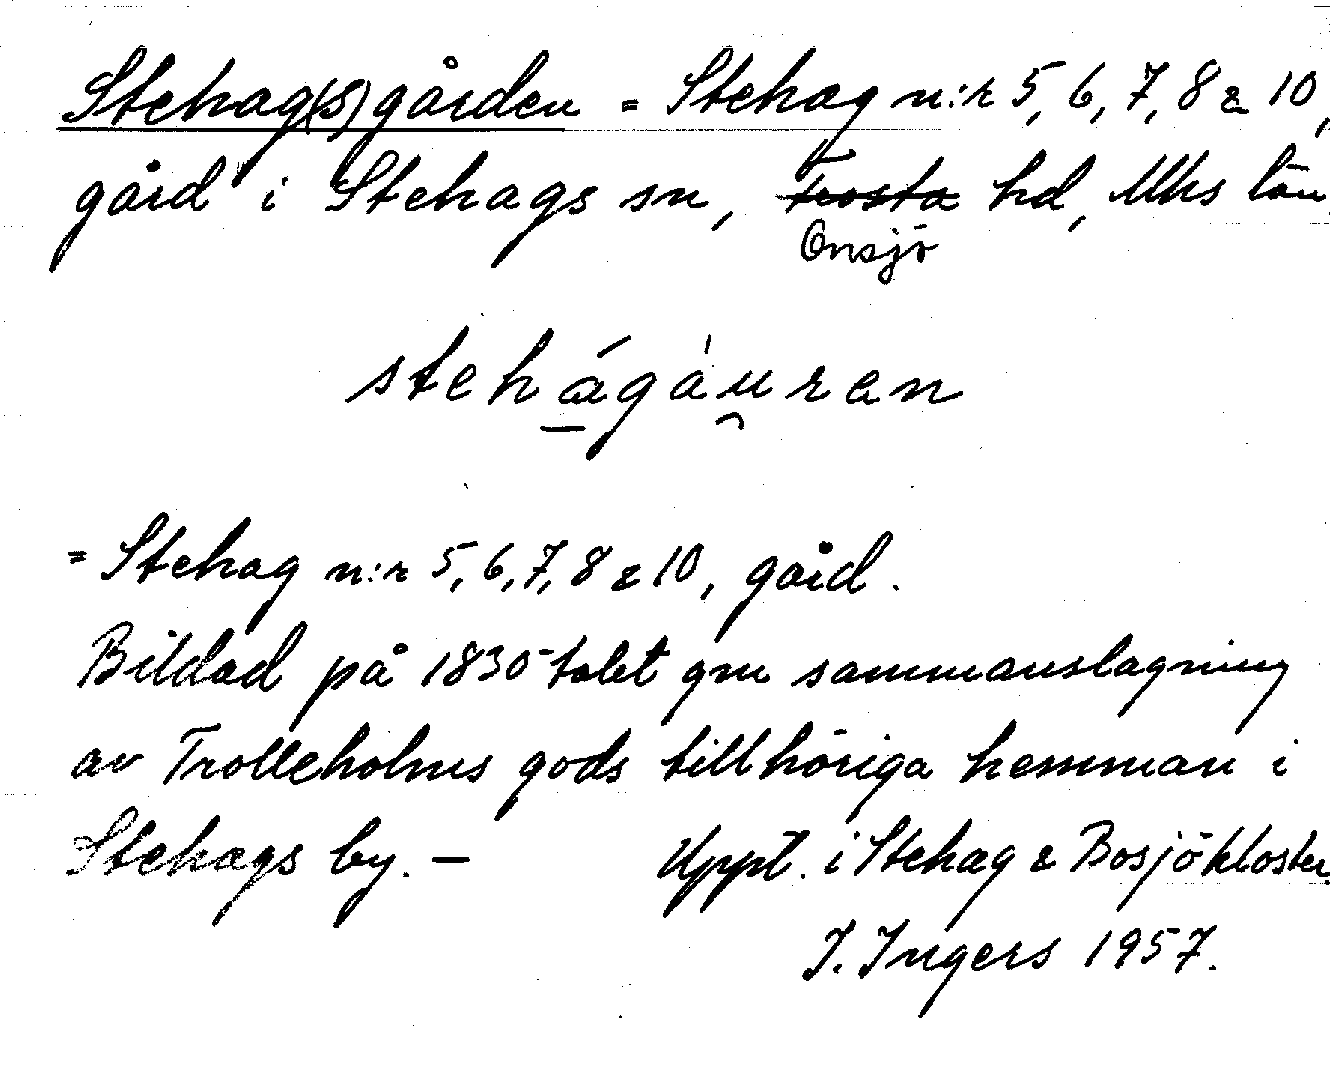 Stehag(s)gården = Stehag n:r 5, 6, 7, 8 & 10,
gård i Stehags sn, Frosta hd, Mhs län
Onsjö
stehágàuren
= Stehag n:r 5, 6, 7, 8 & 10, gård.
Bildad på 1830-talet gm sammanslagning
av Trolleholms gods tillhöriga hemman i
Stehags by. –
Uppt. i Stehag & Bosjökloster
I. Ingers 1957.